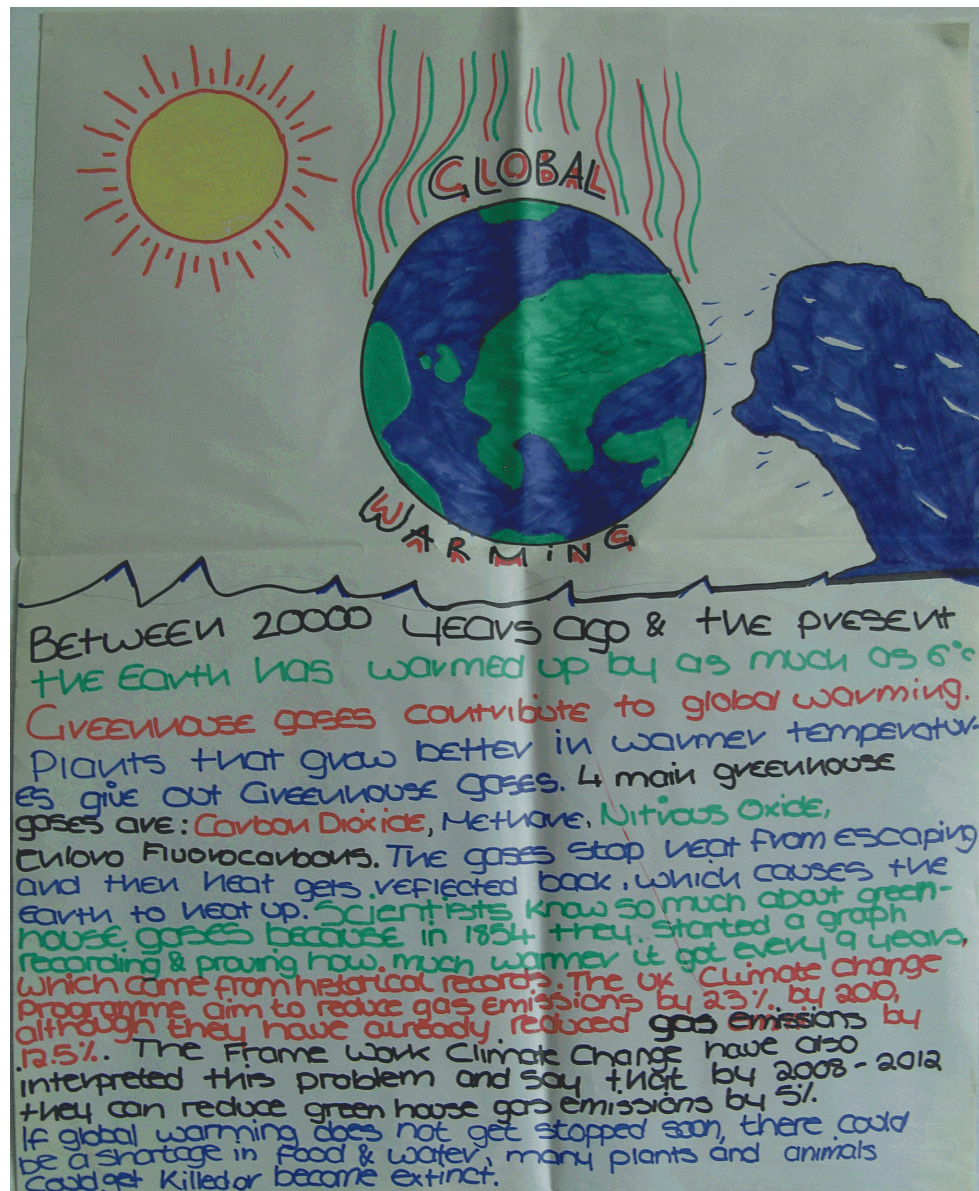 GLOBAL
WARMING
BETWEEN 20000 YEARS ago & the present
the Earth has warmed up by as much as 6°c
Greenhouse gases contribute to global warming.
Plants that grow better in warmer temperatur-
es give out Greenhouse gases. 4 main greenhouse
gases are: Carbon Dioxide, Methane, Nitrous Oxide,
Chloro Fluorocarbons. The gases stop heat from escaping
and then heat gets reflected back, which causes the
Earth to heat up. Scientists know so much about green-
house gases because in 1854 they started a graph
recording & proving how much warmer it got every 9 years,
which came from historical records. The UK Climate change
Programme aim to reduce gas emissions by 23% by 2010,
although they have already reduced gas emissions by
12.5%. The Frame Work Climate Change have also
interpreted this problem and say that by 2008-2012
they can reduce green house gas emissions by 5%.
If global warming does not get stopped soon, there could
be a shortage in food & water, many plants and animals
could get killed or become extinct.